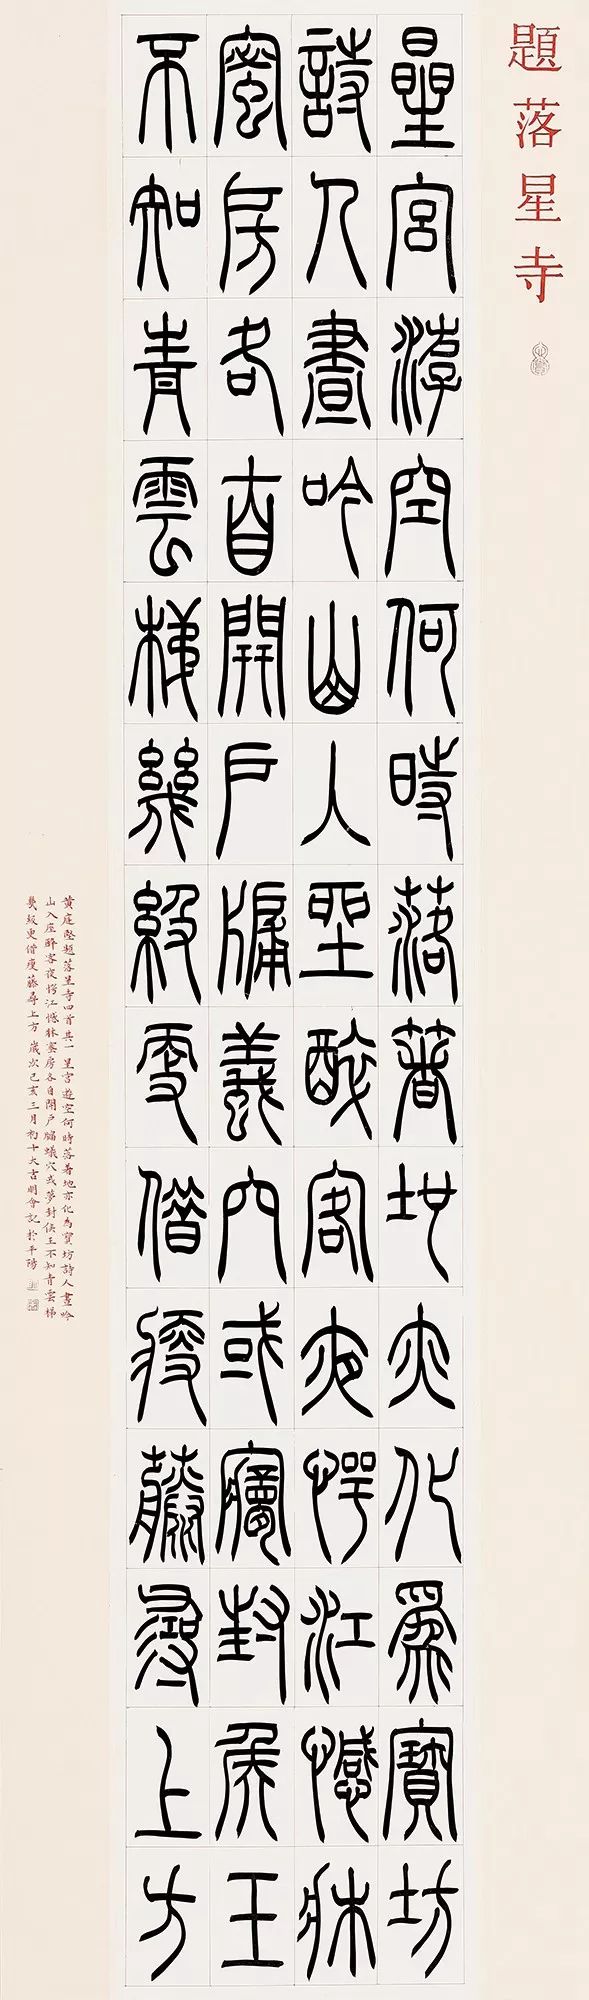 題落星寺
星宮游空何時落著地亦化為寶坊
詩人晝吟山入座醉客夜愕江憾牀
蜜房各自開戶牖蟻穴或夢封侯王
不知青雲梯幾級更借瘦藤尋上方
黃庭堅題落星寺四首其一星宮遊空何時落著地亦化為寶坊詩人晝吟
山入座醉客夜愕江憾牀蜜房各自開戶牖蟻穴或夢封侯王不知青雲梯
幾級更借瘦藤尋上方歲次己亥三月初十大吉明會記於平陽